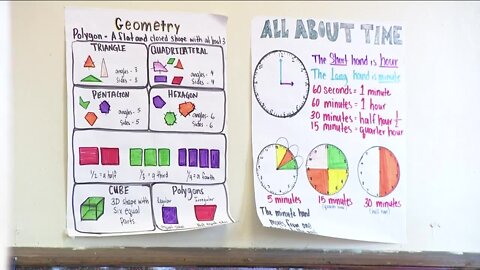 Geometry
Polygon - A flat and closed shape with at least 3
TRIANGLE
angles - 3
sides - 3
QUADRILATERAL
angles - 4
sides - 4
PENTAGON
angles - 5
sides - 5
HEXAGON
angles - 6
sides - 6
1/2 = a half
1/3 = a third
1/4 = a fourth
CUBE
3D shape with
six equal
parts
Polygons
Regular
Irregular
ALL ABOUT TIME
The Short hand is hour
The Long hand is minute
60 seconds = 1 minute
60 minutes = 1 hour
30 minutes = half hour 1/2
15 minutes = quarter hour
5 minutes
15 minutes
30 minutes
The minute hand
moves from one